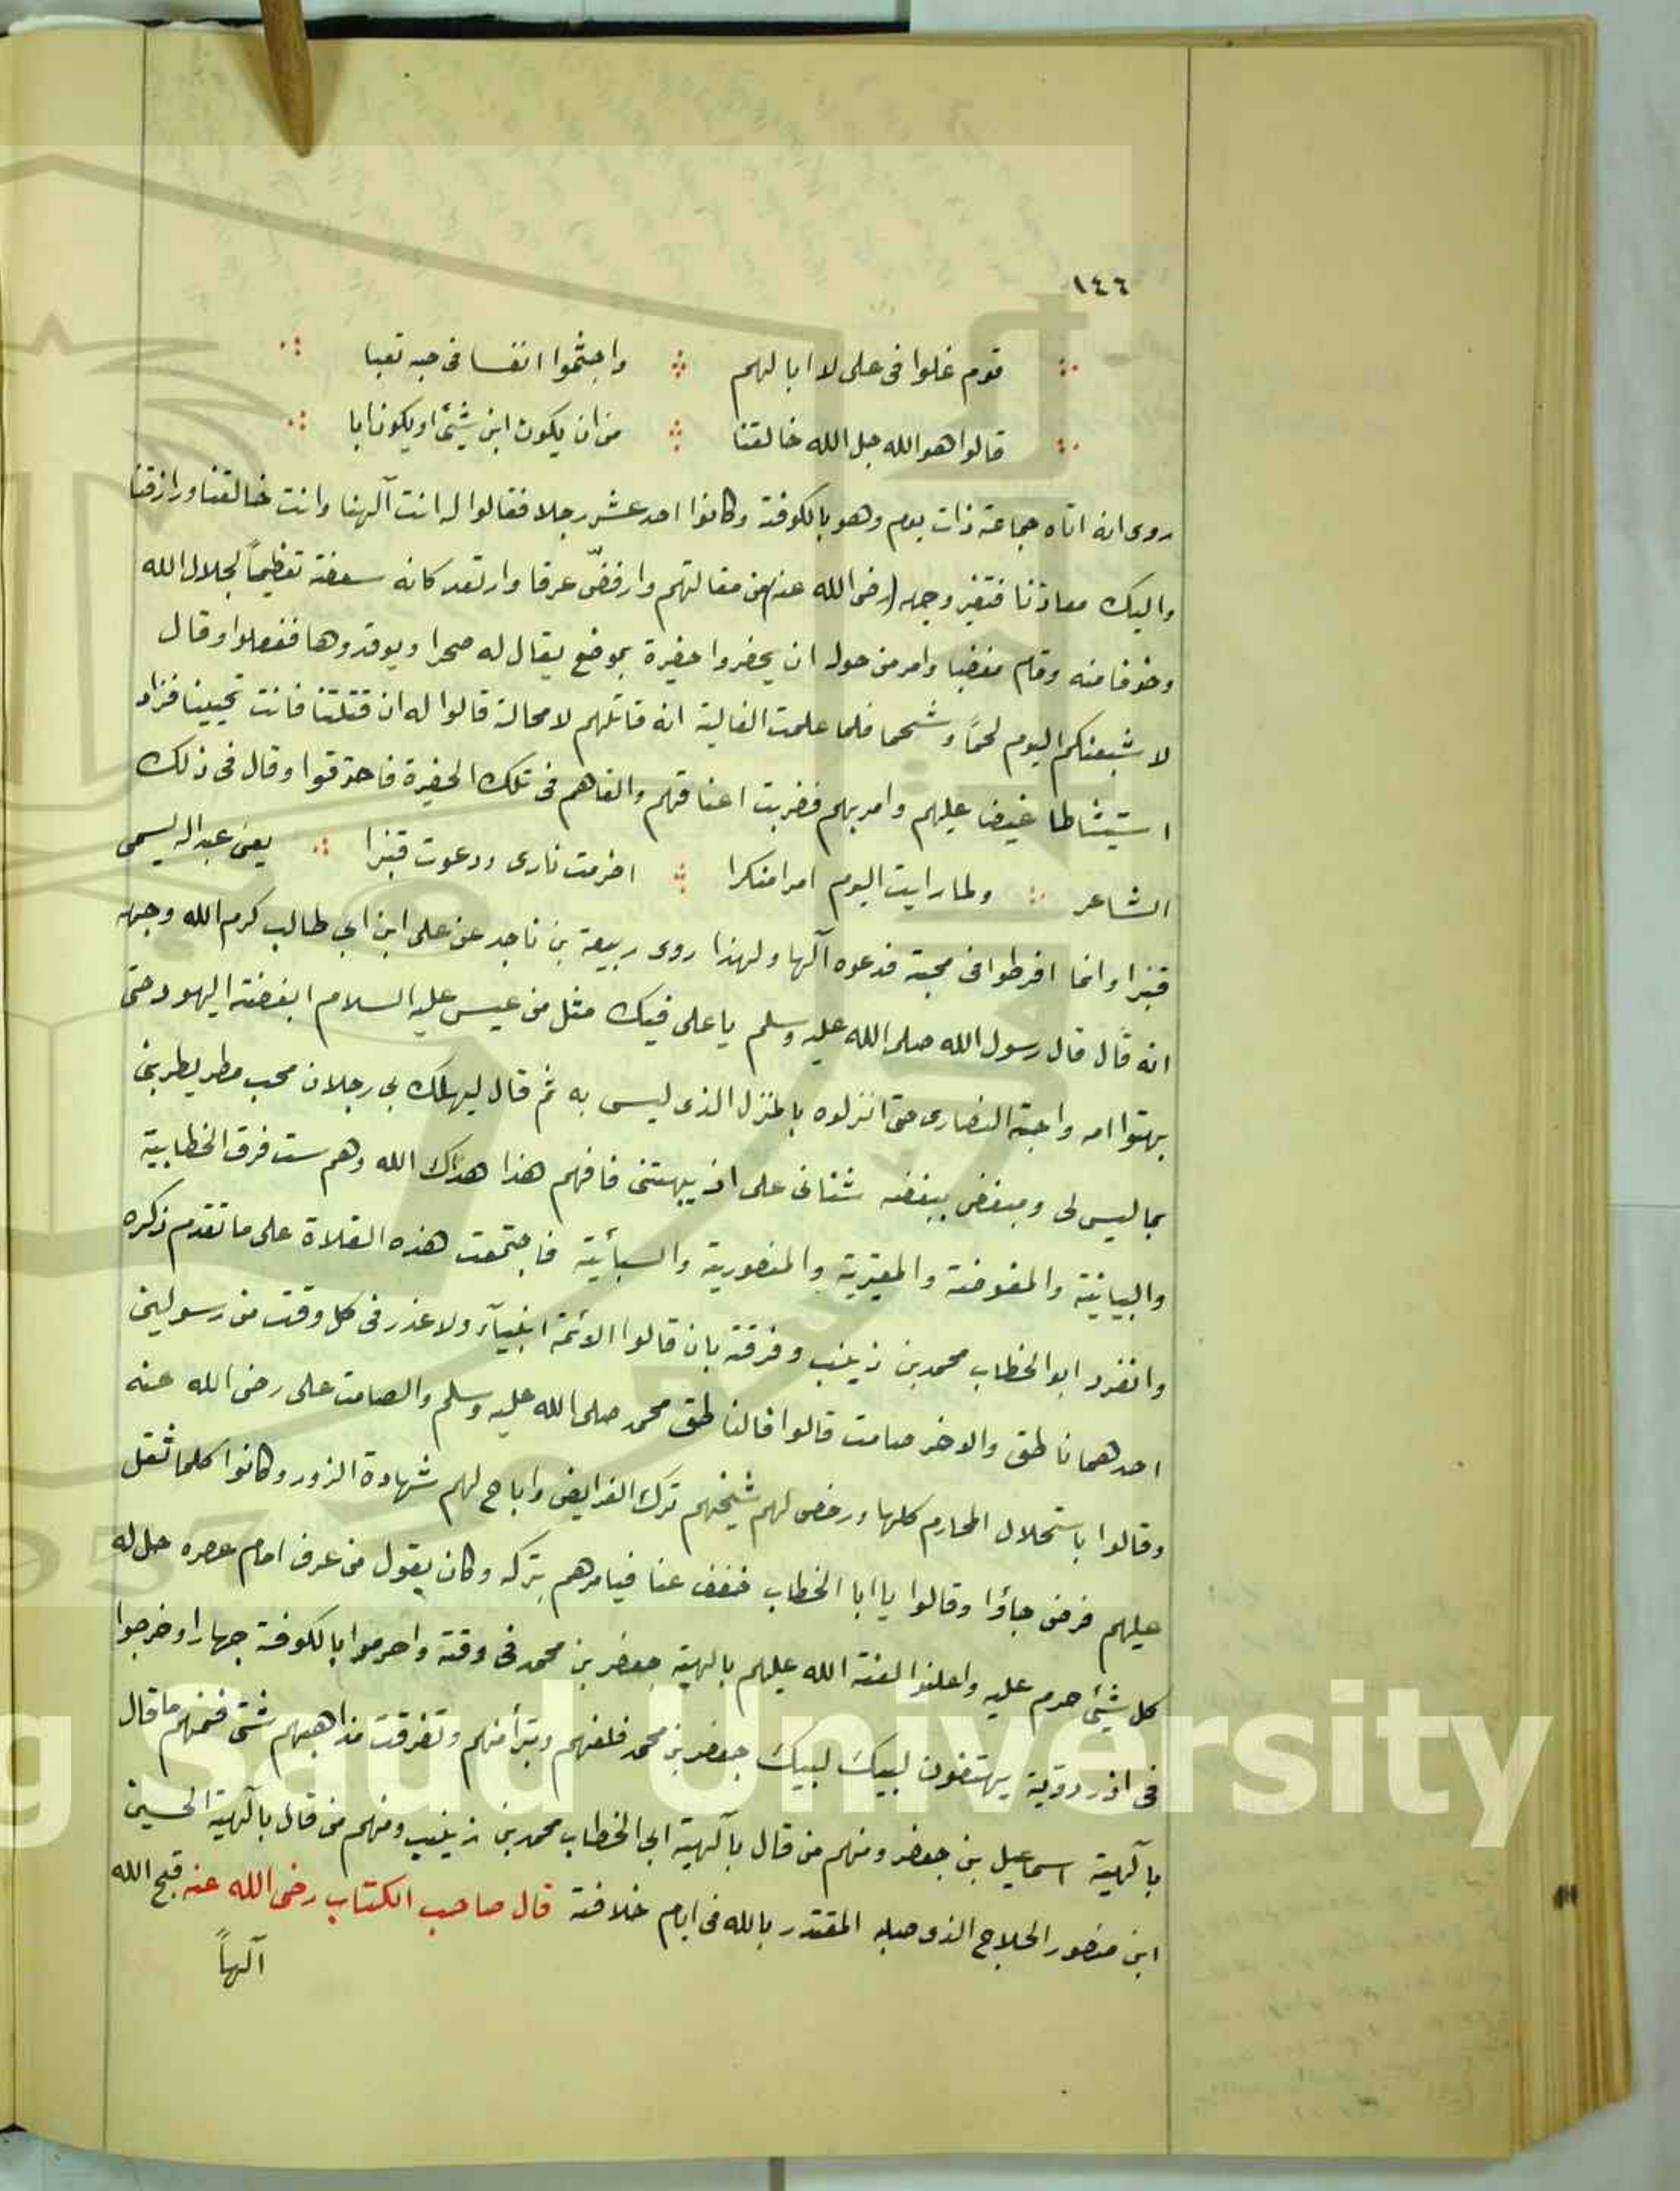 ١٤٦
قوم غلوا فى على لا ابا لهم واجشموا انفسا فى حبه تعبا
قالوا هو الله جل الله خالقنا من ان يكون ابن شيئ او يكون ابا
روى انه اتاه جماعة ذات يوم وهو بالكوفة وكانوا احد عشر رجلا فقالوا له انت آلهنا وانت خالقنا ورازقنا
واليك معادنا فتغير وجهه (رضى الله عنه) من مقالتهم وارفضّ عرقا وارتعد كانه سعفة تعظيماً لجلال الله
وخوفا منه وقام مغضبا وامر من حوله ان يحفروا حفيرة بموضع يقال له صحرا ويوقدوها ففعلوا وقال
لاشبعنكم اليوم لحمًا وشحما فلما علمت الغالية انه قاتلهم لا محالة قالوا له ان قتلتنا فانت تحيينا فزاد
استيشاطا غيض عليهم وامر بهم فضربت اعناقهم والقاهم فى تلك الحفيرة فاحترقوا وقال فى ذلك
الشاعر ولما رايت اليوم امرا منكرا اضرمت نارى ودعوت قنبرا يعنى عبدا له يسمى
قنبرا وانما افرطوا فى محبته فدعوه آلها ولهذا روى ربيعة بن ناجد عن على ابن ابي طالب كرم الله وجهه
انه قال قال رسول الله صلى الله عليه وسلم يا على فيك مثل من عيسى عليه السلام ابغضته اليهود حتى
بهتوا امه واحبته النصارى حتى انزلوه بالمنزل الذى ليس به ثم قال ليهلك بي رجلان محب مطر يطرينى
بما ليس لى ومبغض ببغضه شنانى على ان يبهتنى فافهم هذا هداك الله وهم ست فرق الخطابية
والبيانية والمفوضة والمغيرية والمنصورية والسبأئية فاجتمعت هذه الغلاة على ما تقدم ذكره
وانفرد ابو الخطاب محمد بن زينب وفرقته بان قالوا الائمة انبيآء ولا عذر فى كل وقت من رسولين
احدهما ناطق والاخر صامت قالوا فالناطق محمد صلى الله عليه وسلم والصامت على رضى الله عنه
وقالوا باستحلال المحارم كلها ورخص لهم شيخهم ترك الفرايض واباح لهم شهادة الزور وكانوا كلما ثقل
عليهم فرض جاؤا وقالوا يا ابا الخطاب خفف عنا فيامرهم بتركه وكان يقول من عرف امام عصره حل له
كل شيئ حرم عليه واعلنوا لعنة الله عليهم بالهية جعفر بن محمد فى وقته واحرموا بالكوفة جهارا وخرجوا
فى ازر دوقية يهتفون لبيك لبيك جعفر بن محمد فلعنهم وتبرأ منهم وتفرقت مذاهبهم شتى فمنهم ما قال
بآلهية اسماعيل بن جعفر ومنهم من قال بآلهية ابى الخطاب محمد بن زينب ومنهم من قال بآلهية الحسين
ابن منصور الحلاج الذى صلبه المقتدر بالله فى ايام خلافته قال صاحب الكتاب رضى الله عنه قبح الله
آلهاً
g Saud University